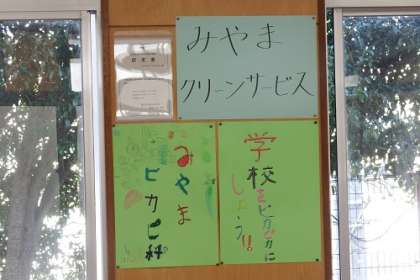 みやま
クリーンサービス
学校をピカピカに
しよう!!
みやま
ピカピ